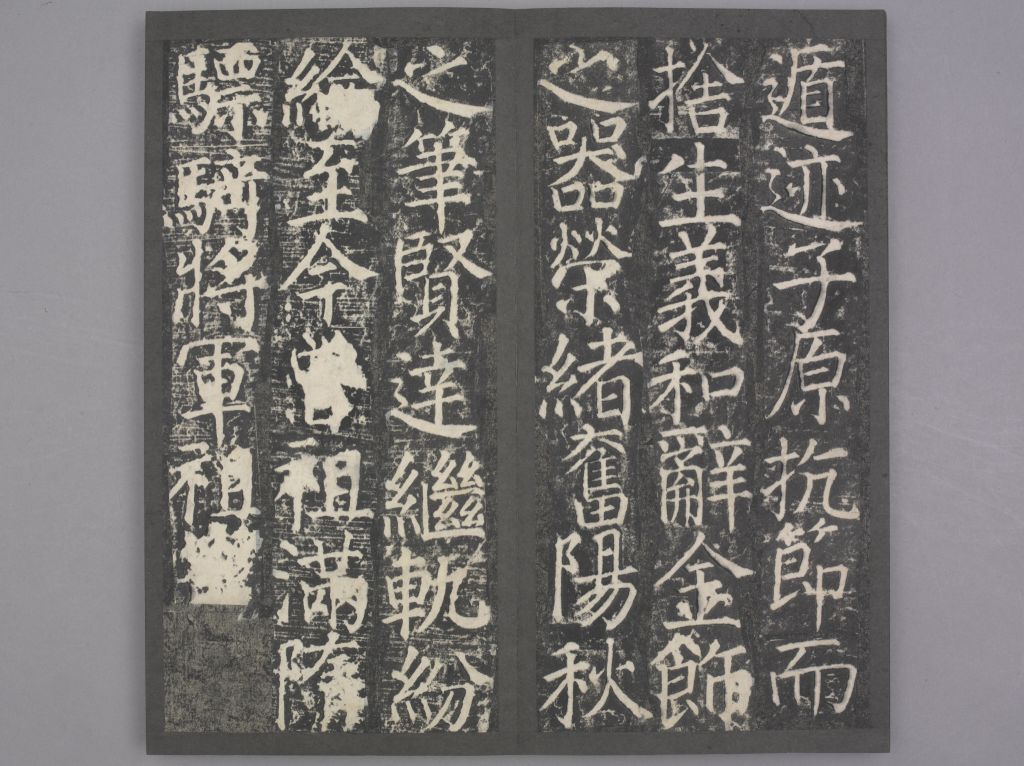 遁迹子原抗節而
捨生義和辭金飾
之器榮緒奮陽秋
之筆賢達繼軌紛
綸至今曾祖滿隋
驃騎將軍祖